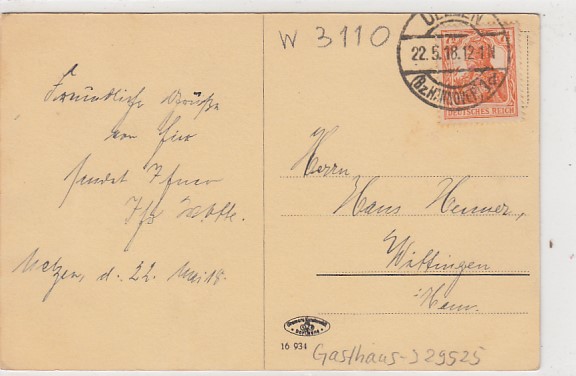 Freundliche Grüße
von hier
sendet Ihnen
Ihr
d. 22. Mai 18.
W 3110
UELZEN
22.5.18.12-1N
DEUTSCHES REICH
Herrn
Hans
Wittingen
Hann.
16 934
Gasthaus-J 29525